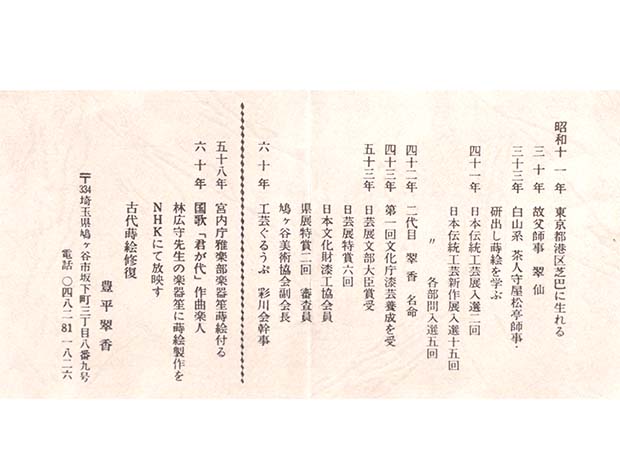 昭和十一年　東京都港区芝巴に生れる
三十年　故父師事　翠仙
三十三年　白山系　茶人守屋松亭師事・
研出し蒔絵を学ぶ
四十一年　日本伝統工芸展入選二回
日本伝統工芸新作展入選十五回
〃　各部間入選五回
四十二年　二代目　翠香　名命
四十三年　第一回文化庁漆芸養成を受
五十三年　日芸展文部大臣賞受
日芸展特賞六回
日本文化財漆工協会員
県展特賞二回　審査員
鳩ヶ谷美術協会副会長
六十年　工芸ぐるうぷ　彩川会幹事
五十八年　宮内庁雅楽部楽器笙蒔絵付る
六十年　国歌「君が代」作曲楽人
林広守先生の楽器笙に蒔絵製作を
NHKにて放映す
古代蒔絵修復
豊平翠香
〒334埼玉県鳩ヶ谷市坂下町三丁目八番九号
電話　〇四八二―81―一八二六